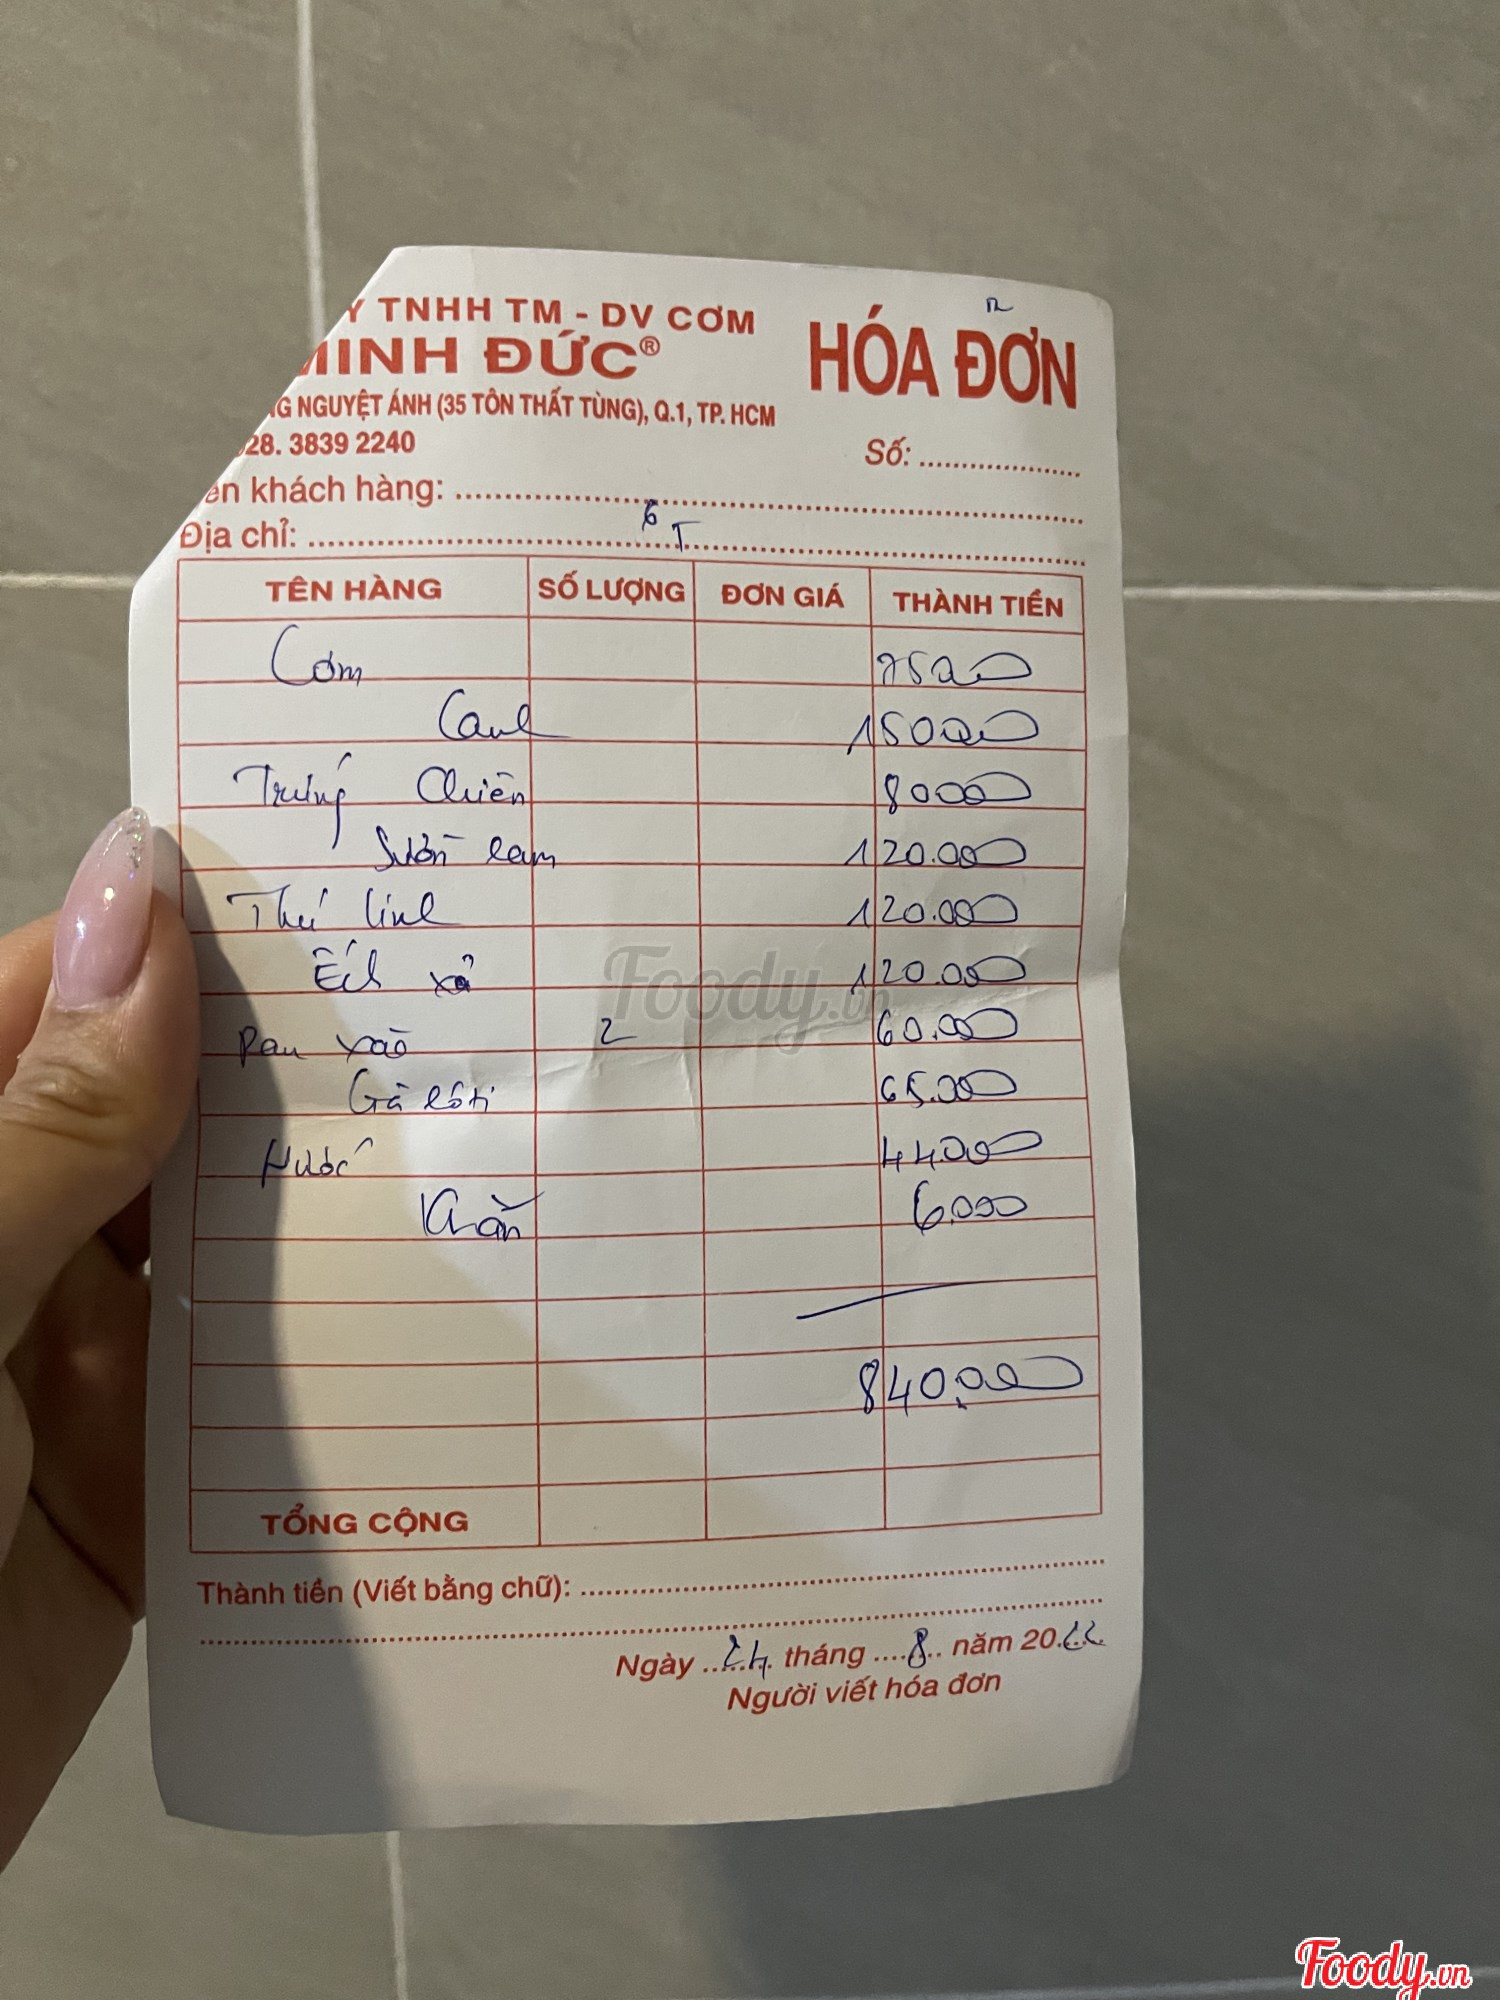 Y TNHH TM - DV CƠM
MINH ĐỨC®
HÓA ĐƠN
NG NGUYỆT ÁNH (35 TÔN THẤT TÙNG), Q.1, TP. HCM
028. 3839 2240
Số:
ên khách hàng:
6
Địa chỉ: T
TÊN HÀNG SỐ LƯỢNG ĐƠN GIÁ THÀNH TIỀN
Cơm
Canh 150000
Trứng Chiên 80000
Sườn ram 120.000
Thú linh 120.000
Ếch xả 120.000
Rau xào 2 60.000
Gà rôti 65.000
Nước 44000
Khăn 6.000
840.000
TỔNG CỘNG
Thành tiền (Viết bằng chữ):
Ngày 24 tháng 8 năm 2022
Người viết hóa đơn
Foody.vn
Foody.vn